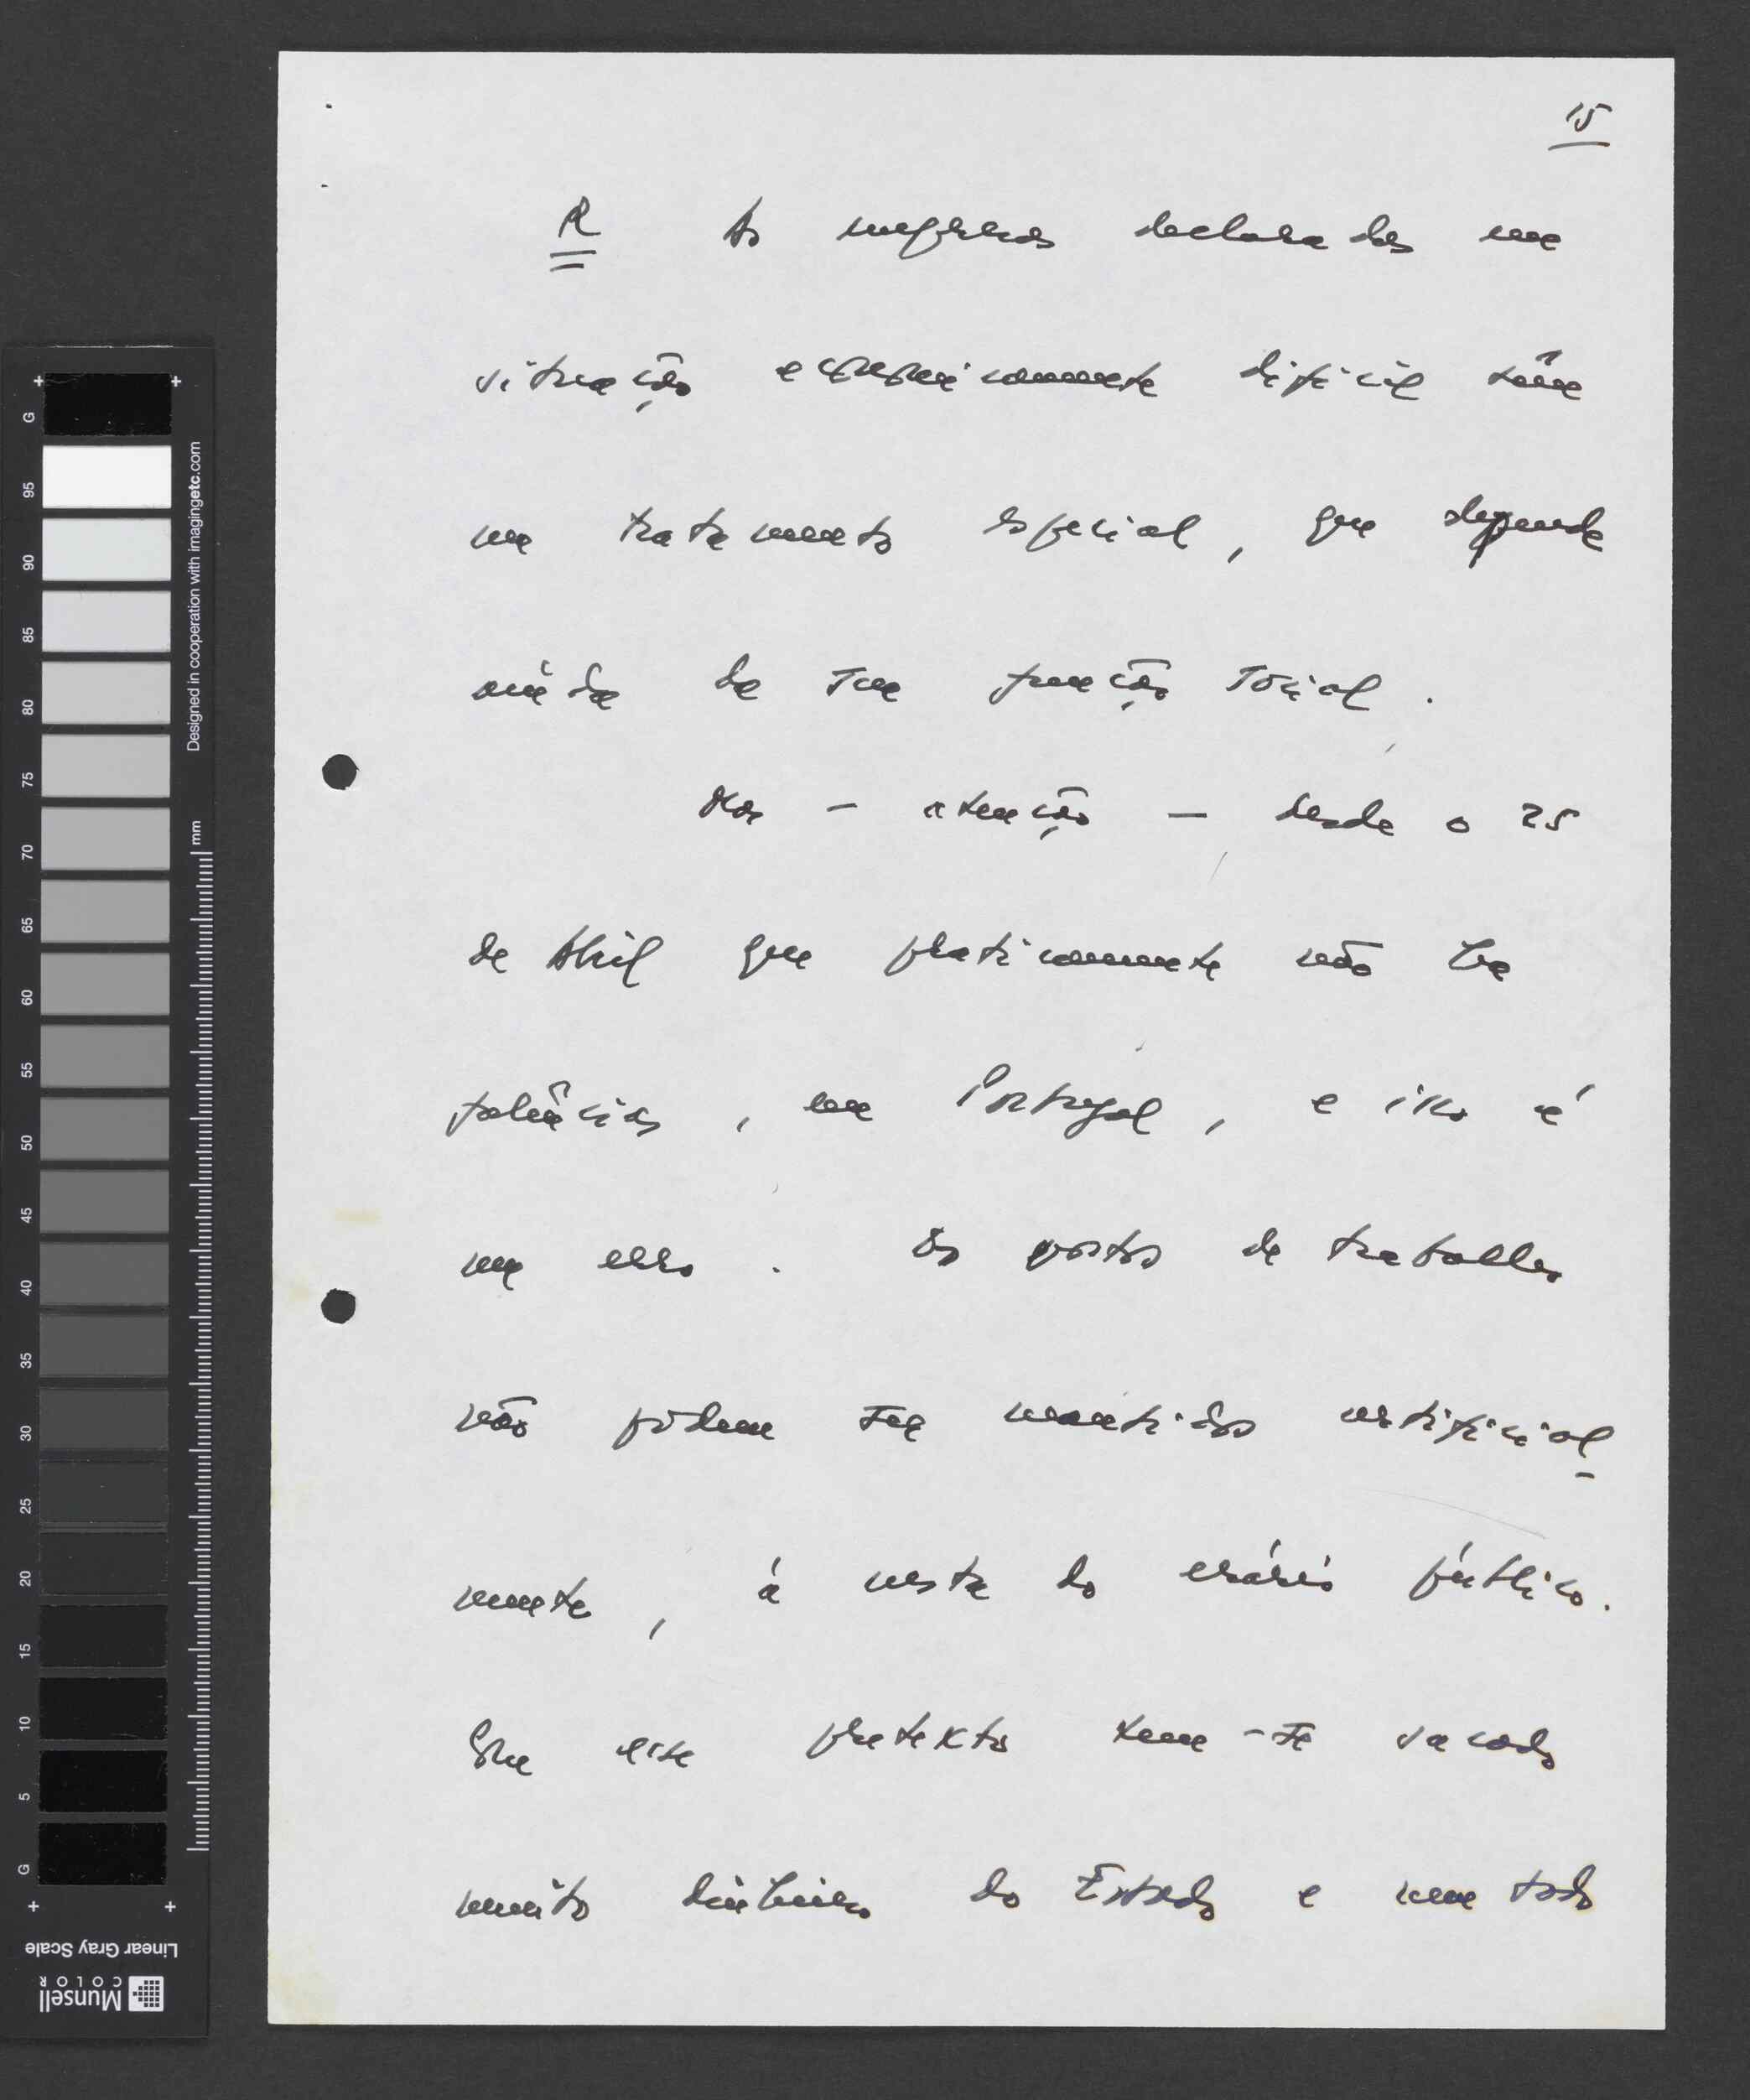 15
R As empresas declaradas em
situação economicamente difícil têm
um tratamento especial, que depende
ainda da sua função social.
Mas - atenção - desde o 25
de Abril que praticamente não há
falências, em Portugal, e isso é
um erro. Os postos de trabalho
não podem ser mantidos artificial-
mente, à custa do erário público.
Sob esse pretexto tem-se sacado
muito dinheiro do Estado e nem todo
G 95 90 85 80 75 70 65 60 55 50 45 40 35 30 25 20 15 10 5 G
Designed in cooperation with imagingetc.com
mm
Linear Gray Scale
Munsell
COLOR